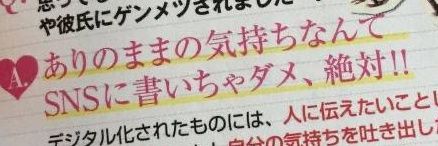 や彼氏にゲンメツされました
A. ありのままの気持ちなんて
SNSに書いちゃダメ、絶対!!
デジタル化されたものには、人に伝えたいこと
自分の気持ちを吐き出した